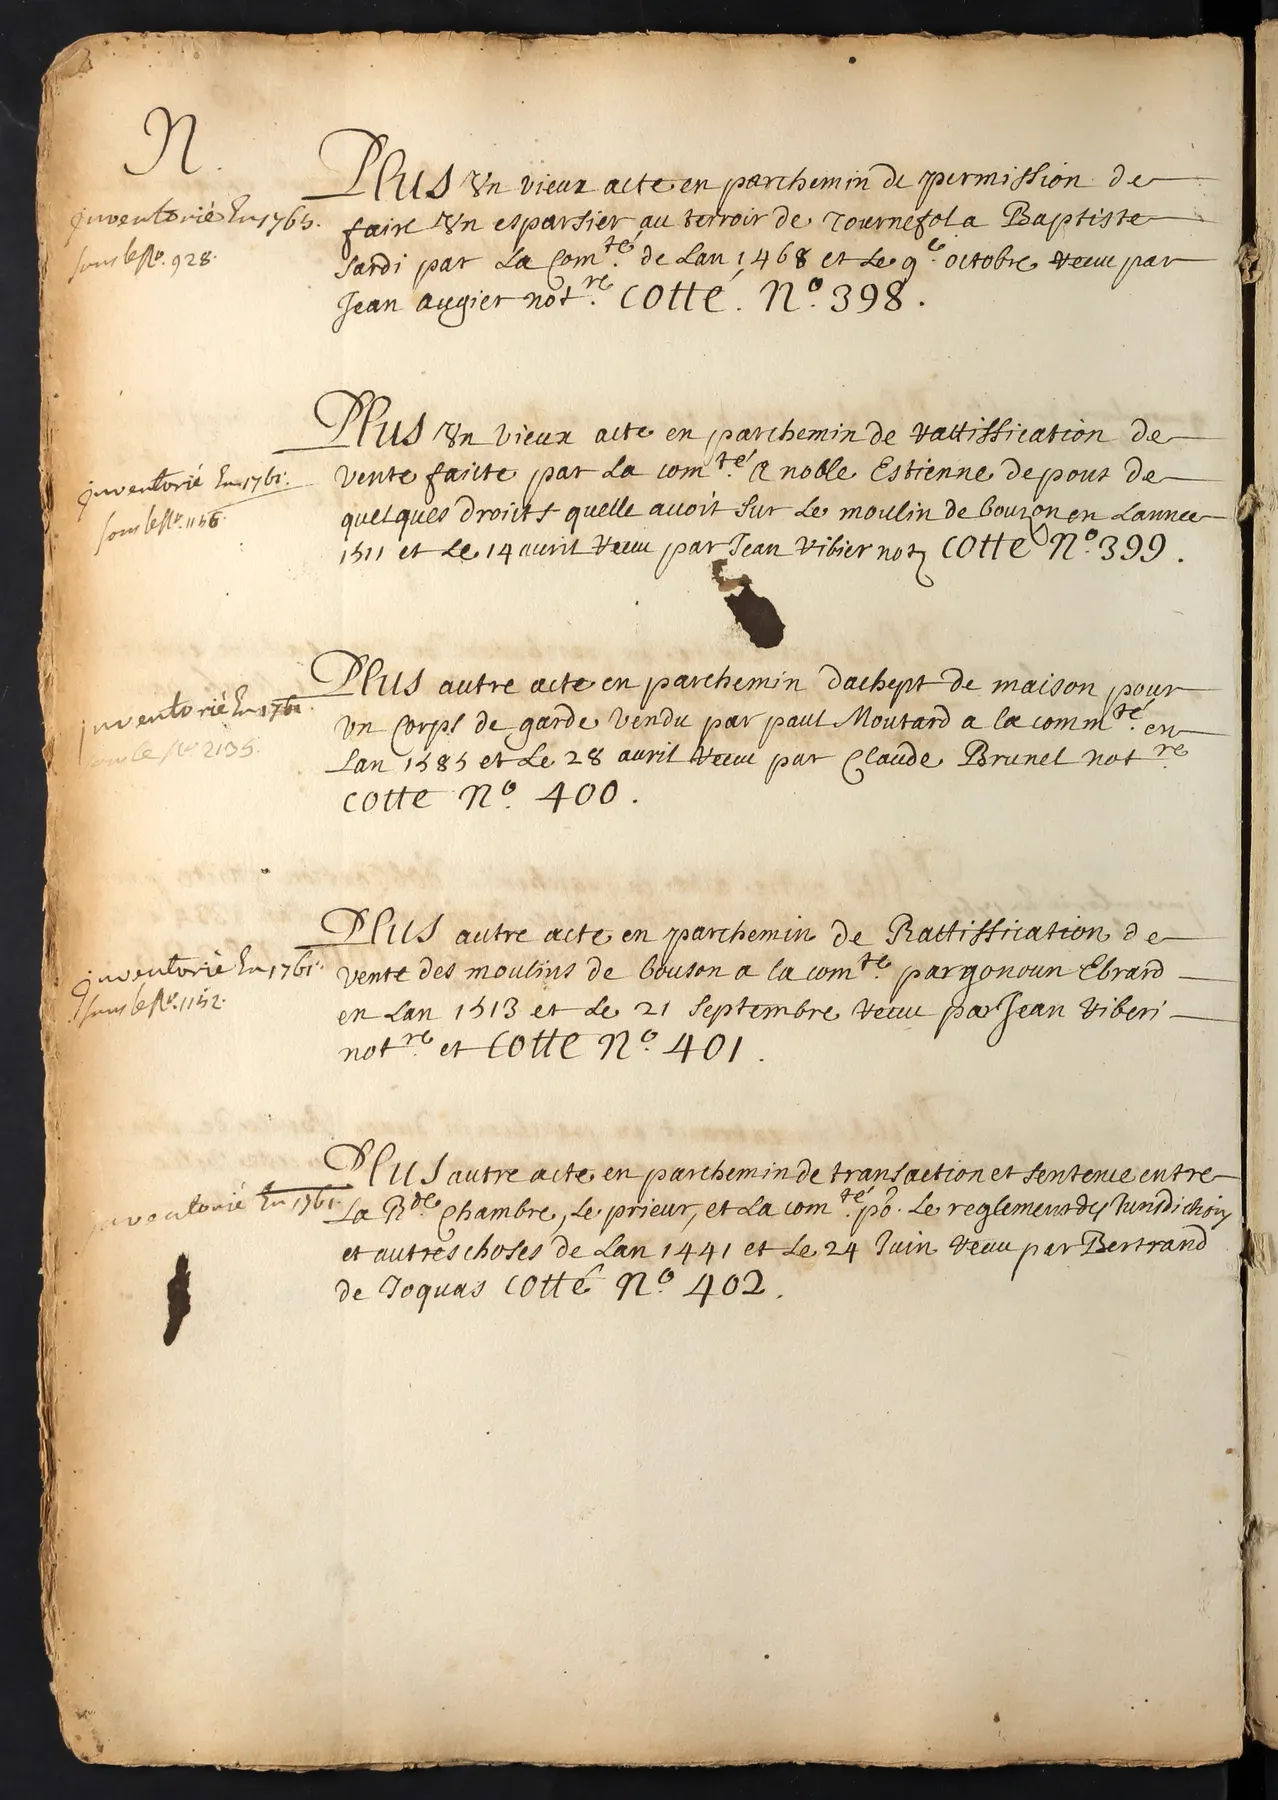 N.
Plus Un vieux acte en parchemin de permission de
inventorié En 1765.
sous le No. 928.
faire Un esparsier au terroir de Tournefol a Baptiste
Sardi par La Com.té de Lan 1468 et Le 9e octobre receu par
Jean augier notre. Cotté. No. 398.
Plus Un vieux acte en parchemin de rattiffication de
inventorié En 1761.
sous le No. 1156.
vente faicte par La comté. A noble Estienne de pons de
quelques droicts quelle avoit Sur Le moulin de bouzon en Lannee
1511 et Le 14 avril receu par Jean Vibier not Cotté No. 399.
Plus autre acte en parchemin dachept de maison pour
inventorié En 1761.
sous le No 2135.
un Corps de garde vendu par paul Moutard a la commté. en
Lan 1585 et Le 28 avril receu par Claude Brunel notre.
Cotte No. 400.
Plus autre acte en parchemin de Rattiffication de
inventorié En 1761.
sous le No. 1152.
vente des moulins de bouson a la comté. par gonoun Ebrard
en Lan 1513 et Le 21 Septembre receu par Jean Viberi
notre. et Cotte No. 401.
Plus autre acte en parchemin de transaction et sentence entre
inventorié En 1761.
La Rde Chambre, Le prieur, et La comté. po. Le reglement des Jurisdictions
et autres choses de Lan 1441 et Le 24 Juin receu par Bertrand
de Joquas Cotté No. 402.